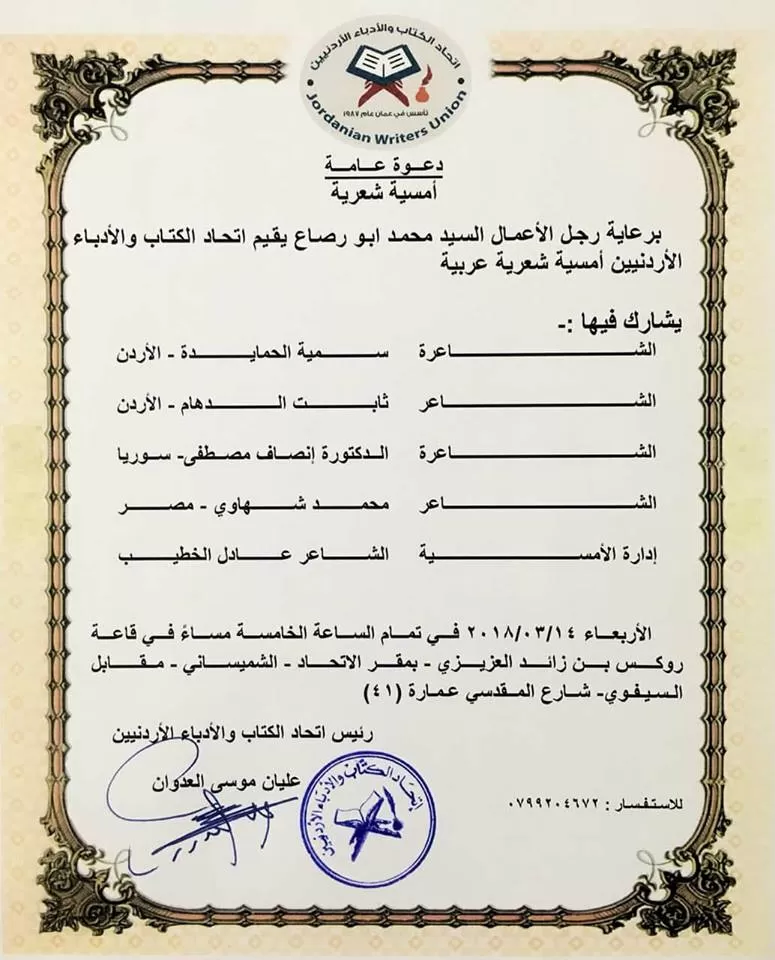 اتحاد الكتاب والأدباء الأردنيين
تأسس في عمان عام ١٩٨٧
Jordanian Writers Union
دعوة عامة
أمسية شعرية
برعاية رجل الأعمال السيد محمد ابو رصاع يقيم اتحاد الكتاب والأدباء
الأردنيين أمسية شعرية عربية
يشارك فيها :-
الشاعرة سمية الحمايدة - الأردن
الشاعر ثابت الدهام - الأردن
الشاعرة الدكتورة إنصاف مصطفى- سوريا
الشاعر محمد شهاوي - مصر
إدارة الأمسية الشاعر عادل الخطيب
الأربعاء ٢٠١٨/٠٣/١٤ في تمام الساعة الخامسة مساءً في قاعة
روكس بن زائد العزيزي - بمقر الاتحاد - الشميساني - مقابل
السيفوي- شارع المقدسي عمارة (٤١)
رئيس اتحاد الكتاب والأدباء الأردنيين
عليان موسى العدوان
للاستفسار : ٠٧٩٩٢٠٤٦٧٢
إتحاد الكتاب والأدباء الأردنيين